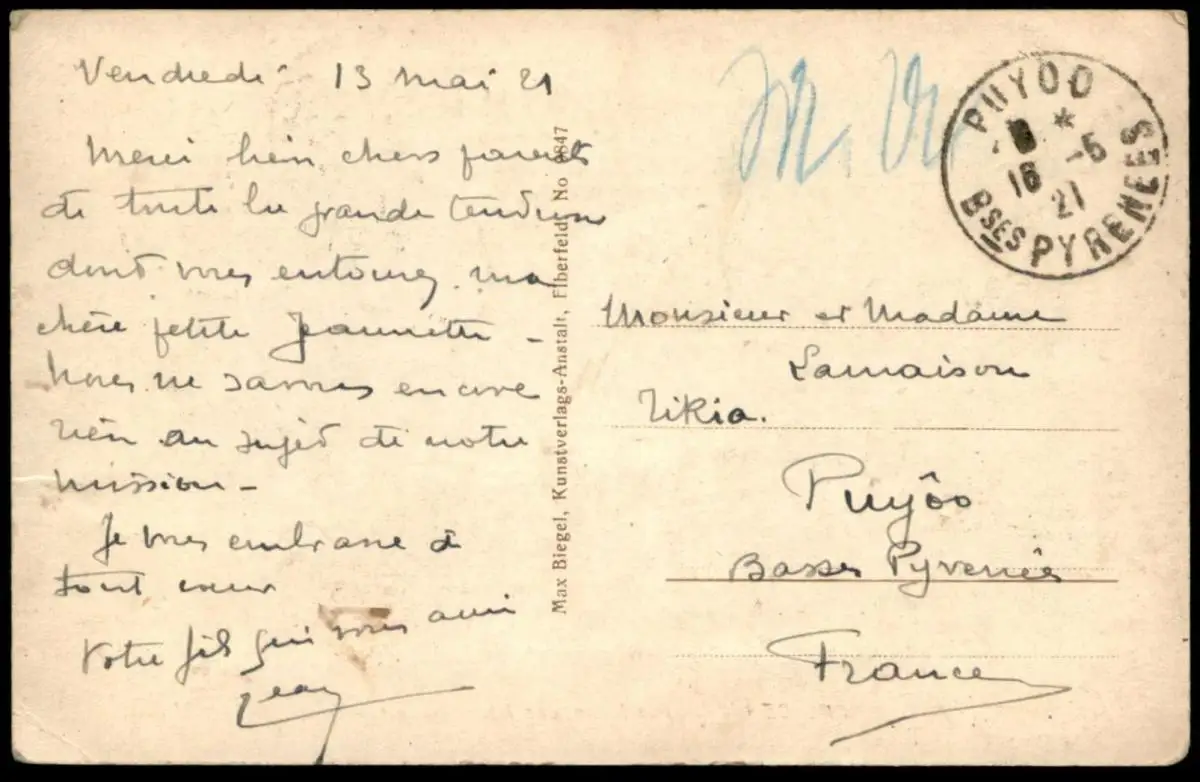 Vendredi - 13 mai 21
Merci bien chers parents
de toute la grande tendresse
dont vous entourez ma
chère petite Jeannette -
Nous ne savons encore
rien au sujet de notre
mission -
Je vous embrasse de
tout cœur
Votre fils qui vous aime
Jean
Max Biegel, Kunstverlags-Anstalt, Elberfeld, No 9847
PUYOO
*
16 -5
21
BSES PYRENEES
Monsieur et Madame
Lamaison
Puyôo
Basses Pyrenées
France